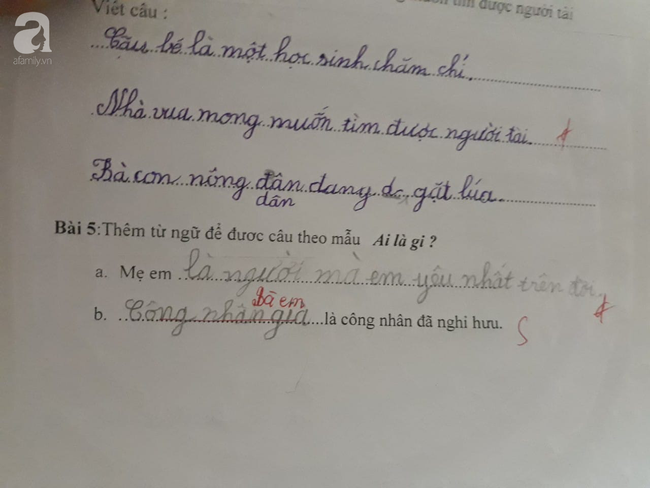 a
afamily.vn
được người tài
Viết câu :
Cậu bé là một học sinh chăm chỉ.
Nhà vua mong muốn tìm được người tài.
Bà con nông dân dang gặt lúa.
dân
Bài 5:Thêm từ ngữ để đươc câu theo mẫu Ai là gi ?
a. Mẹ em là người mà em yêu nhất trên đời.
Bà em
b. Công nhân già là công nhân đã nghi hưu.